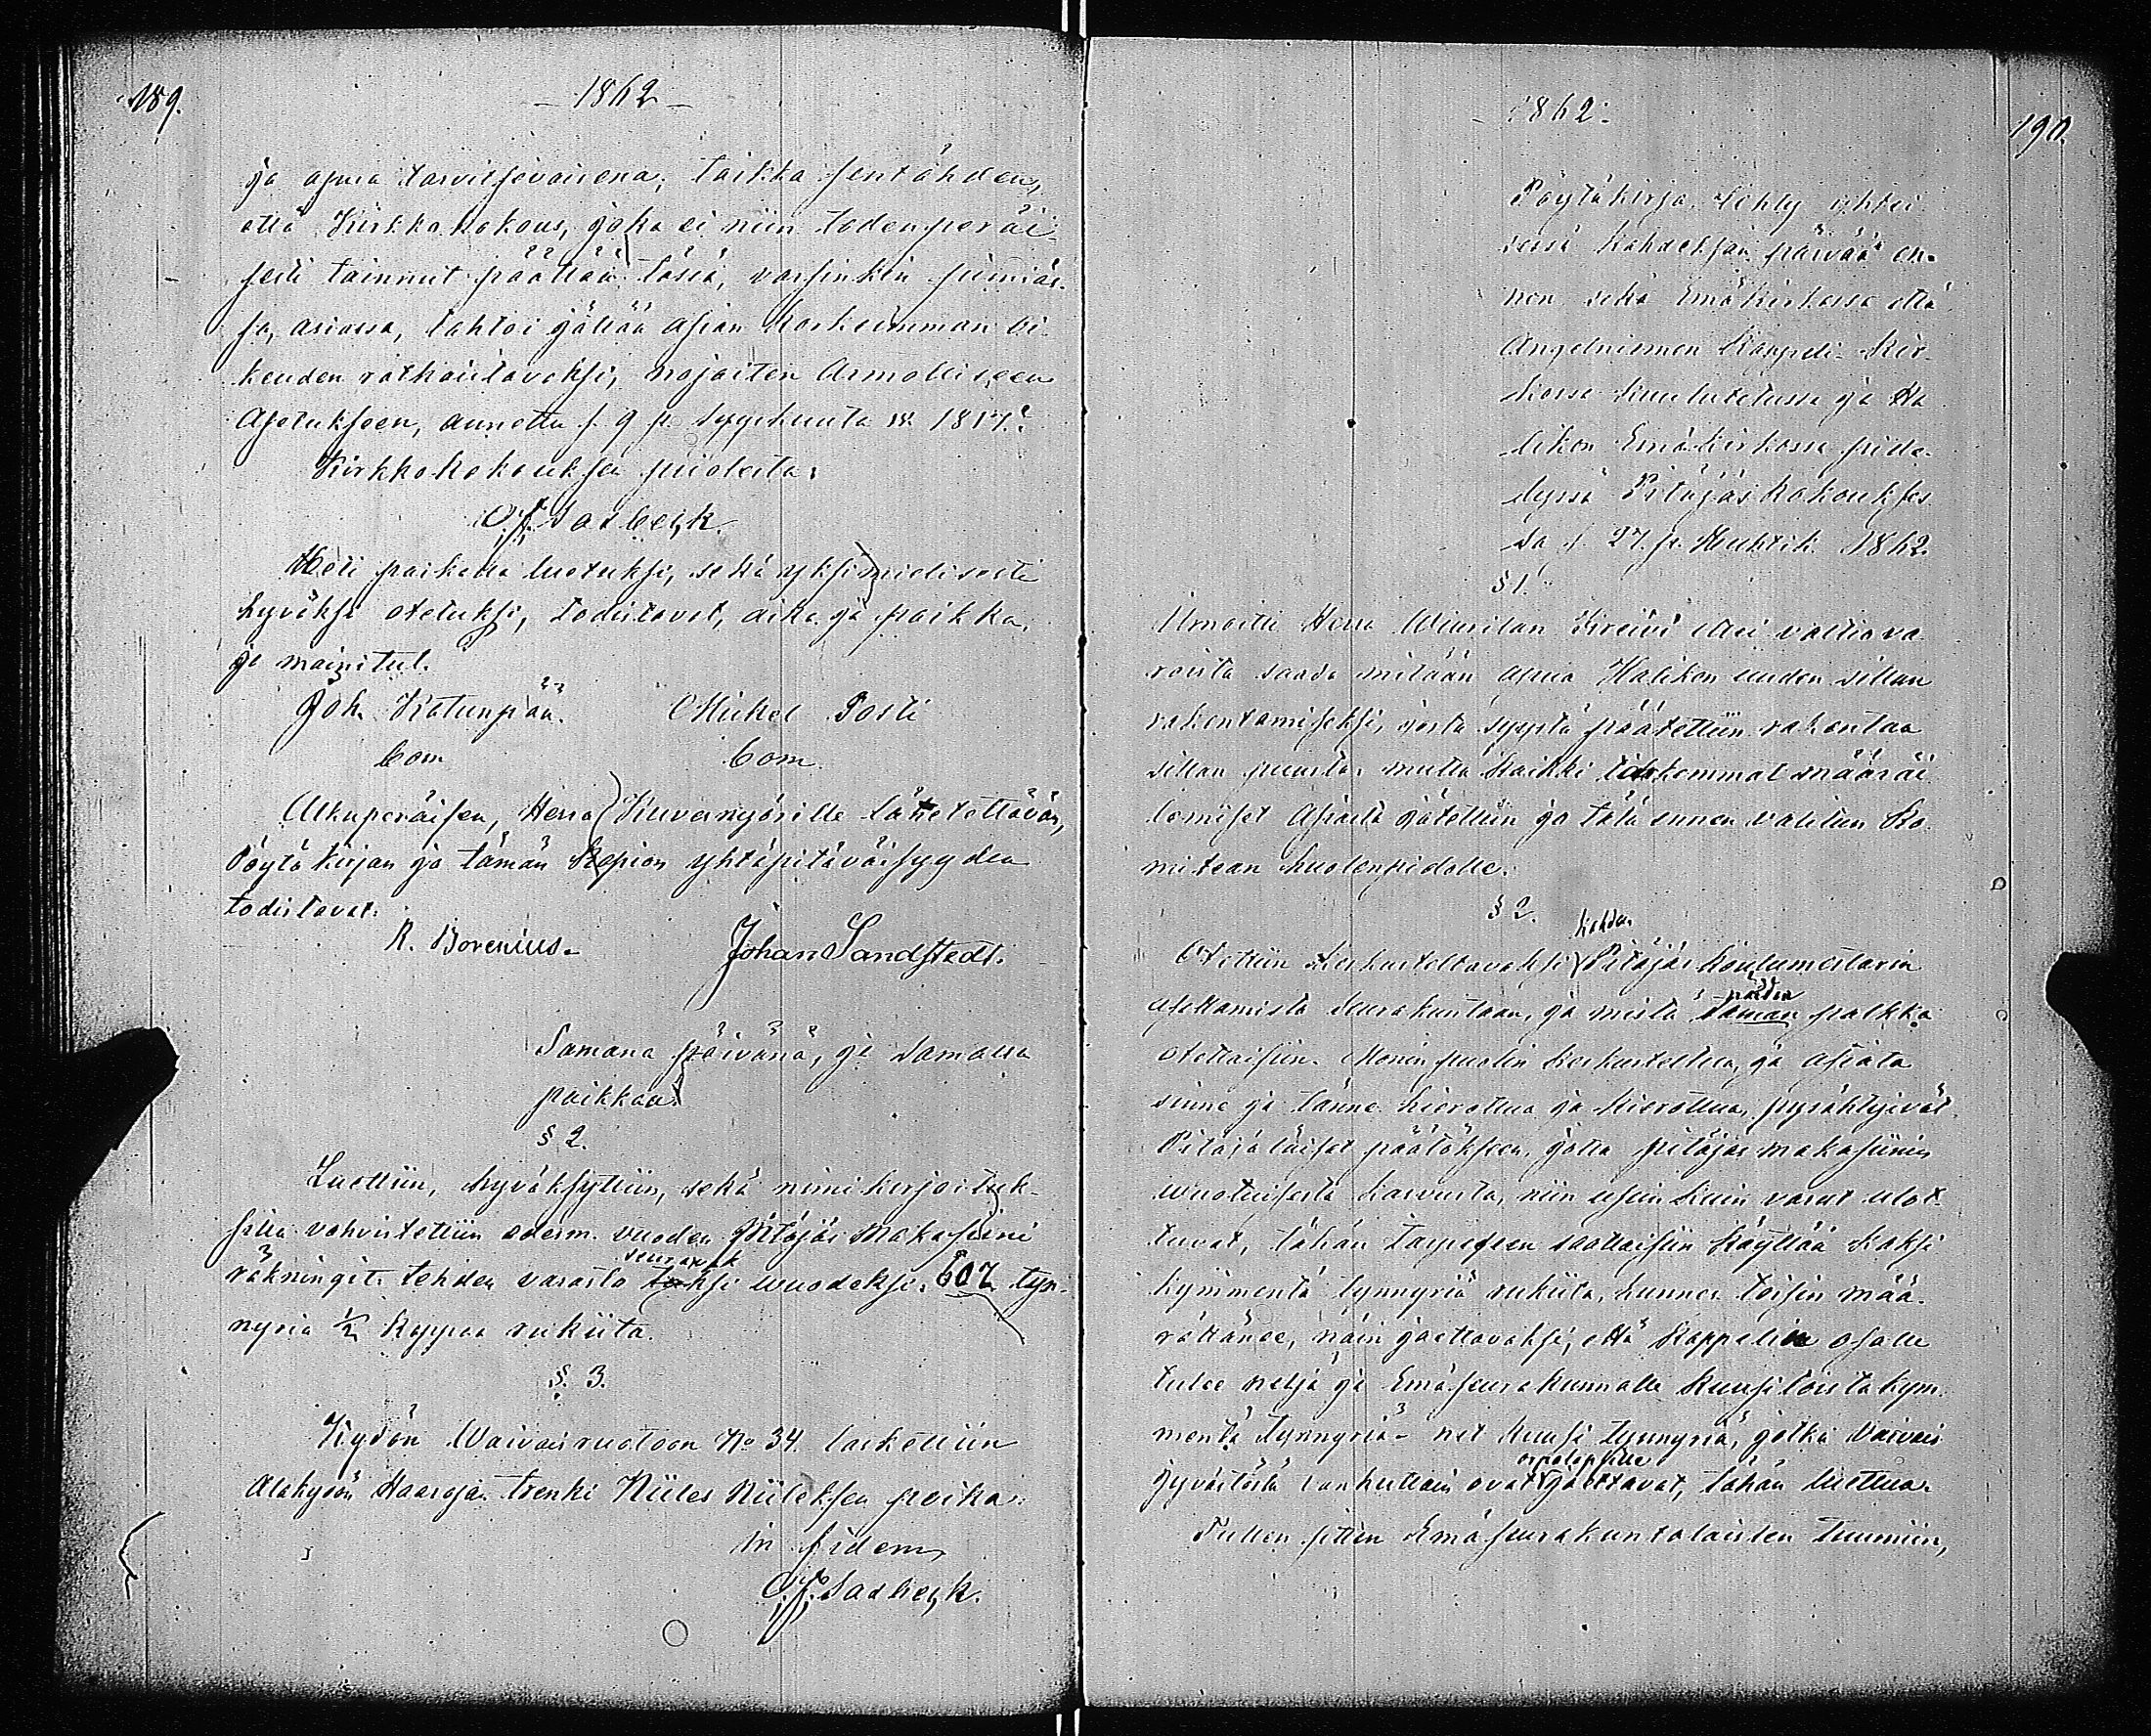 189.
- 1862 -
ja apua tarvitsevaisena; taikka sentähden,
että Kirkkokokous, joka ei niin todenperäi-
sesti tainnut päättää tässä, varsinkin
sa, asiassa, tahtoi jättää asian Korkeimman Oi-
keuden ratkaistavaksi, nojaiten Armolliseen
Asetukseen, annettu s. 9 p. Syyskuuta v. 1817.
Kirkkokokouksen puolesta:
Heti paikalla luetuksi, sekä yksimielisesti
hyväksi otetuksi, todistavat, aika ja paikka,
ja mainitut.
Joh. Katunpää. Mickel Posti
Alkuperäisen, Herra Kuvernyörille lähetettävän,
Pöytäkirjan ja tämän Kopion yhtäpitäväisyyden
todistavat:
R. Borenius. Johan Sandstedt.
Samana päivänä, ja samassa
paikkaa.
§ 2.
Luettiin, hyväksyttiin, sekä nimikirjoituk-
silla vahvistettiin edesm. vuoden Pitäjäs Makasiini
räkningit: tehden varasto seuravak si wuodeksi: 607 tyn-
nyria 1/2 Kappaa rukiita.
§. 3.
Kydön Waivaisruotoon No 34. laskettiin
Alakydön Haaroja. trenki Niiles Niileksen poika:
in fidem

1862.
190.
Pöytäkirja tehty yhtei-
sessä kahdeksan päivää en-
nen sekä Emäkirkossa että
Angelniemen Kappeli-Kir-
kossa kuulutetussa ja Ha-
likon Emäkirkossa pide-
tyssä Pitäjäs Kokoukses-
sa s. 27. p. Huhtik. 1862.
§ 1.
Ilmoitti Herra Wiurilan Kreivi ettei valtiova-
roista saada mitään apua Halikon uuden sillan
rakentamiseksi, josta syystä päätettiin rakentaa
sillan puusta; mutta kaikki tarkemmat määräi-
lemiset Asiasta jätettiin jo tätä ennen valitun Ko-
mitean huolenpidolle.
§ 2.
Otettiin Keskusteltavaksi kahden Pitäjäs Koulumestarin
asettamista Seurakuntaan, ja mistä näiden palkka
otettaisiin. Monin puolin keskusteltua, ja asiata
sinne ja tänne hierottua ja kierottua, pysähtyivät
Pitäjäläiset päätökseen, jotta pitäjäs makasiinin
wuotuisesta kasvusta, niin usein kuin varat ulot-
tuvat, tähän tarpeeseen saattaisiin käyttää kaksi
kymmentä tynnyriä rukiita, kunnes toisin mää-
rättänee, näin jaettavaksi, että Kappelin osalle
tulee neljä ja Emäseurakunnalle kuusitoistakym-
mentä Tynnyriä - net kuusi tynnyriä, jotka Vaivais
jyvästöstä vanhuttain ovat jaettavat, tähän luettua.
Tullen sitten Emäseurakuntalaisten tuumiin,